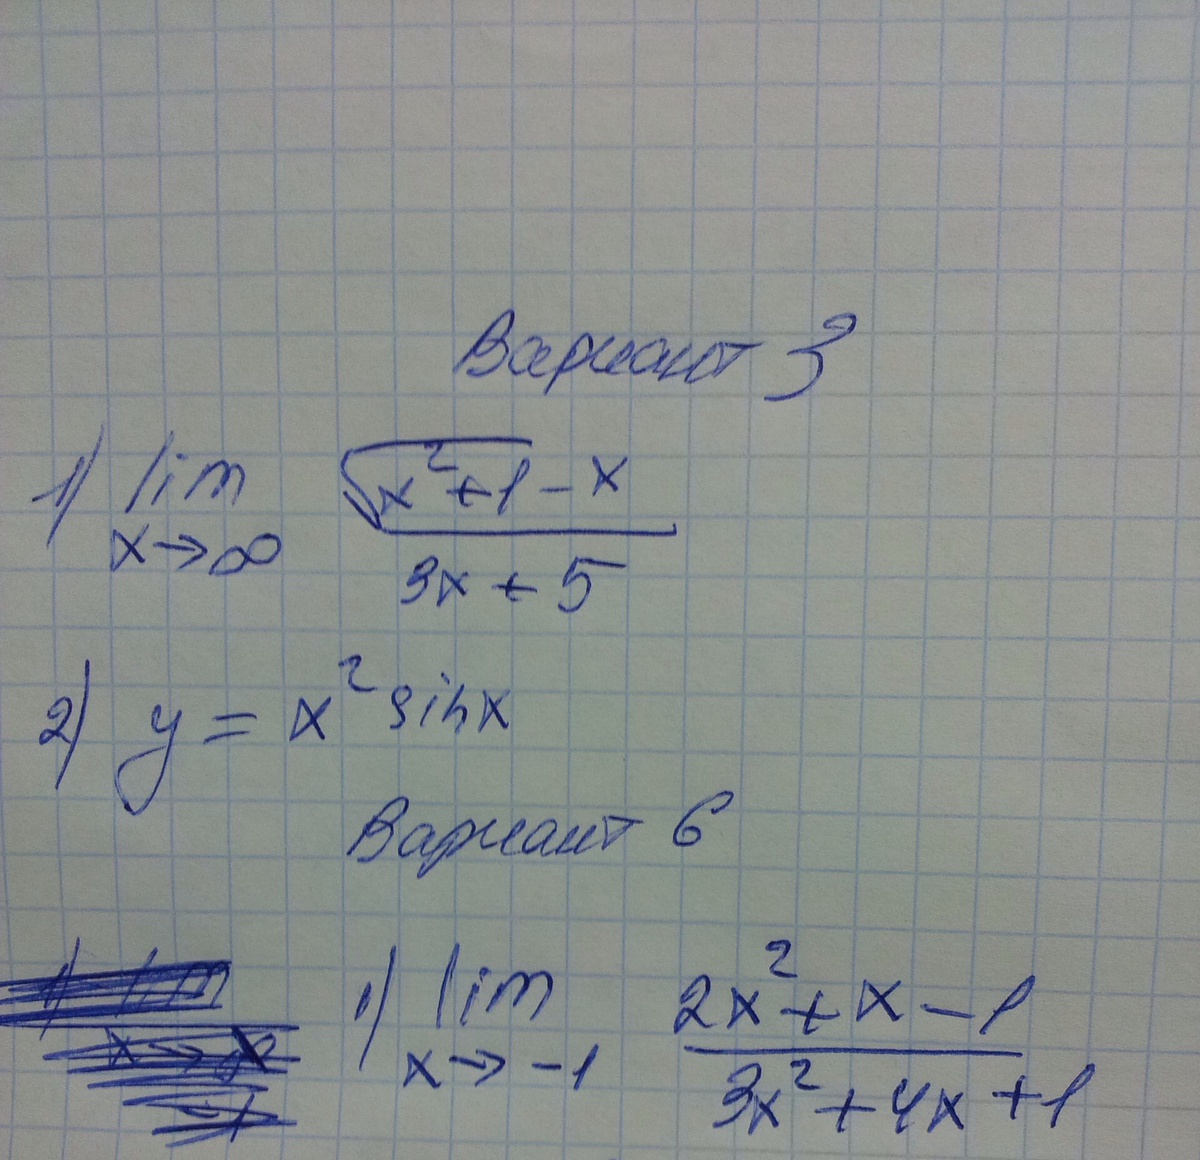 Вариант 3
1) lim √x²+1 - x
x→∞ 3x + 5
2) y = x² sinx
Вариант 6
1) lim 2x² + x - 1
x→ -1 3x² + 4x + 1